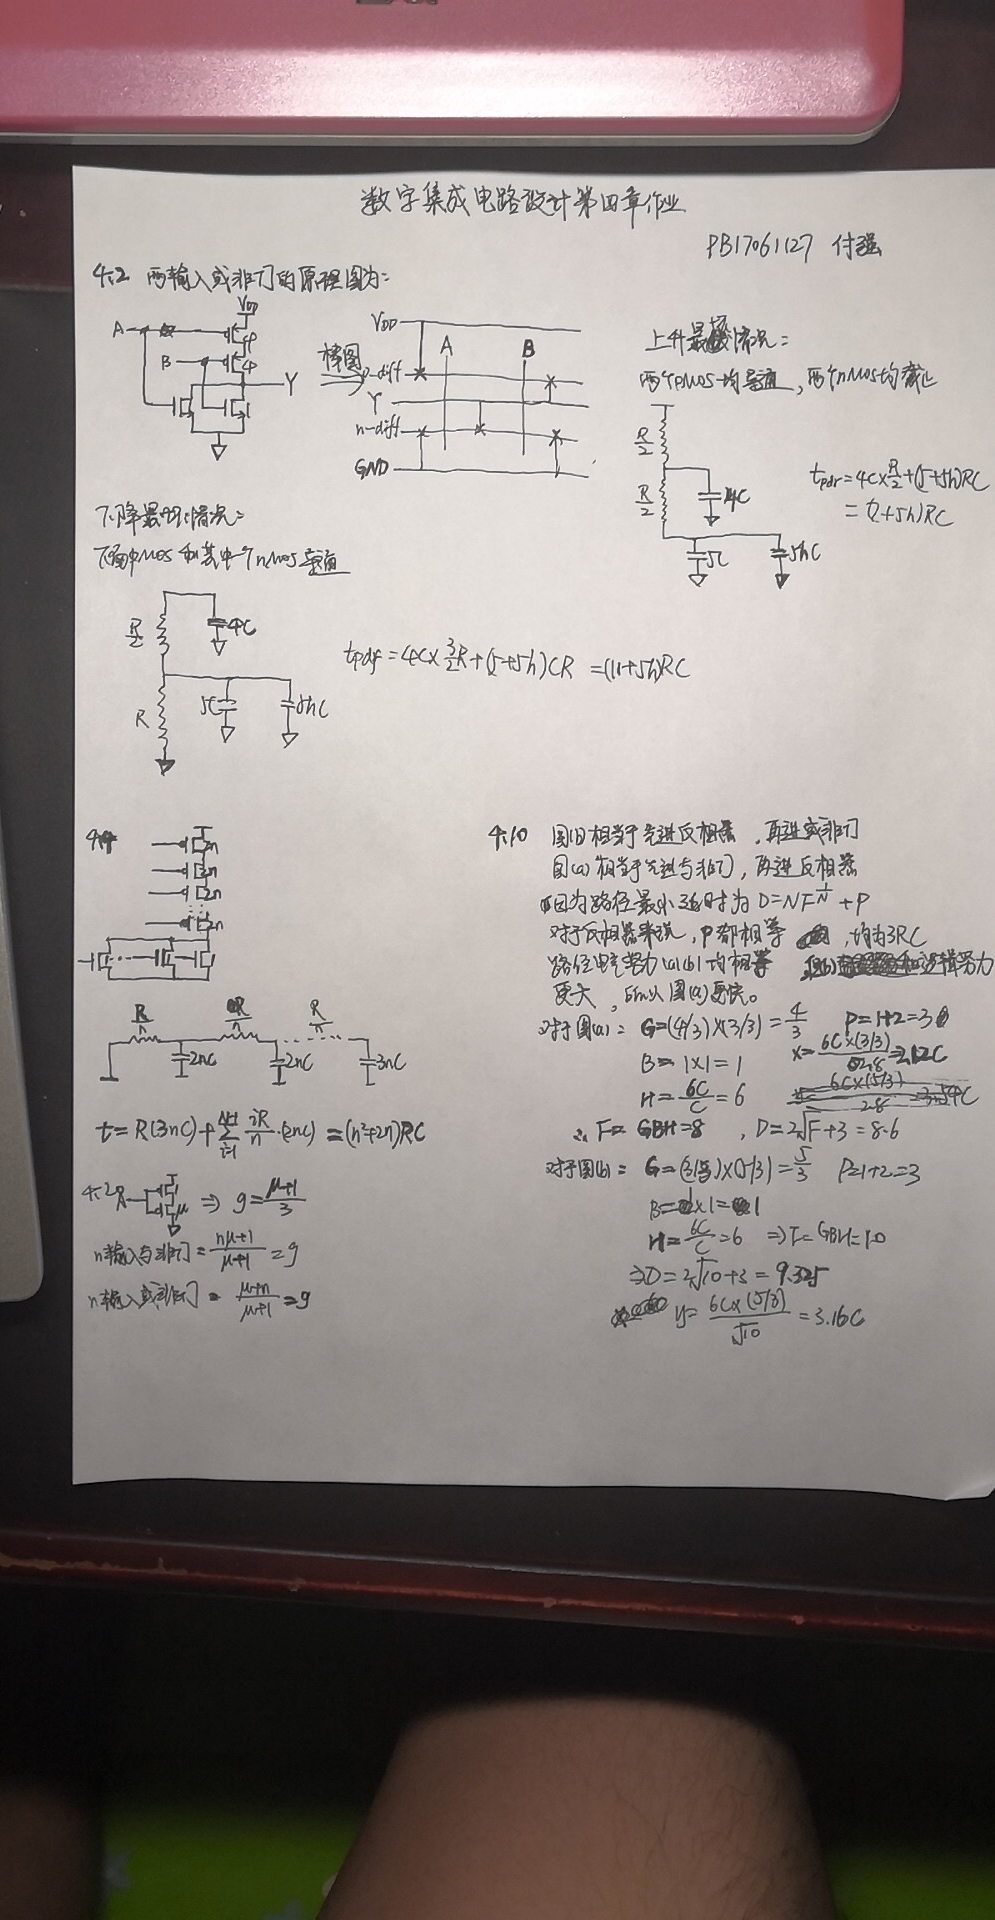 数字集成电路设计第四章作业
PB17061127 付强
4.2 两输入或非门的原理图为:
VDD
A
B
4
4
Y
棒图
VDD
A
B
p-diff
Y
n-diff
GND
上升最坏情况:
两个pMOS均导通,两个nMOS均截止
R/2
R/2
4C
5C
5hC
tpdr=4C×R/2+(5+5h)RC
=(7+5h)RC
下降最坏情况:
nMOS导通
R/2
4C
R
5C
5hC
tpdf=4C×3/2R+(5+5h)CR=(11+5h)RC
2n
2n
2n
2n
R/n
R/n
R/n
2nC
2nC
3nC
t=R(3nC)+∑ iR/n·(2nC)=(n²+2n)RC
A
μ
⇒ g=(μ+1)/3
n输入与非门=(nμ+1)/(μ+1)=g
n输入或非门=(μ+n)/(μ+1)=g
4.10 图(b)相当于先进反相器,再进或非门
图(a)相当于先进与非门,再进反相器
因为路径最小延时为D=NF^(1/N)+P
对于反相器来说,P都相等,均为3RC
路径电气努力(a)(b)均相等 逻辑努力
更大,所以图(a)更快。
对于图(a): G=(4/3)×(3/3)=4/3 P=1+2=3
B=1×1=1
H=6C/C=6
x=6C×(3/3)/2.8=2.12C
∴F=GBH=8,D=2√F+3=8.6
对于图(b): G=(3/3)×(5/3)=5/3 P=1+2=3
B=1×1=1
H=6C/C=6 ⇒F=GBH=10
⇒D=2√10+3=9.325
y=6C×(5/3)/√10=3.16C